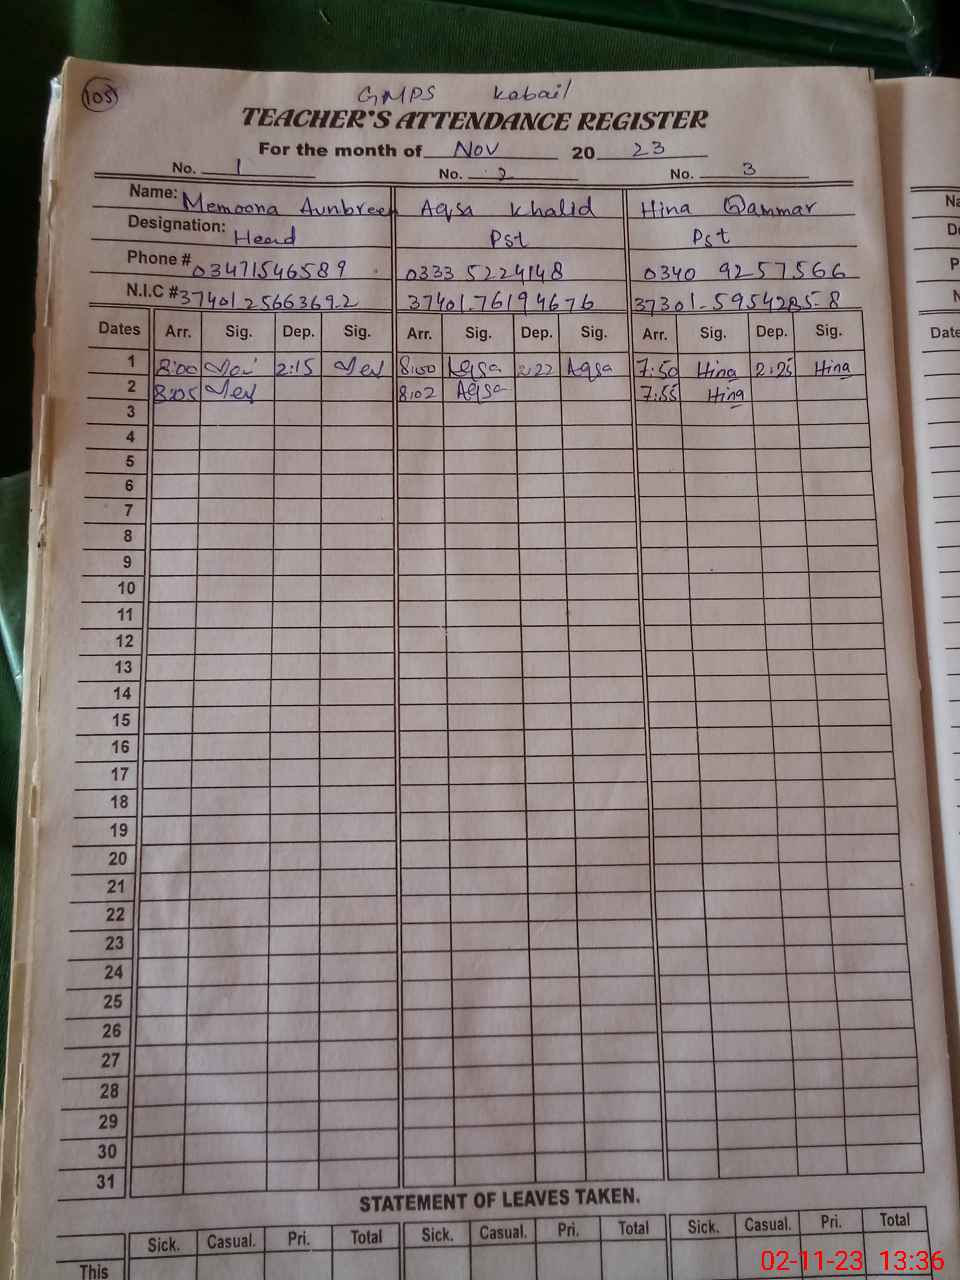 105
GMPS kabail
TEACHER'S ATTENDANCE REGISTER
For the month of Nov 20 23
No. 1 No. 2 No. 3
Name: Memoona Aunbreen Aqsa Khalid Hina Qammar
Designation: Head Pst Pst
Phone # 03471546589 0333 5224148 0340 9257566
N.I.C # 37401.2566369.2 37401.76194676 37301-5954285-8
Dates Arr. Sig. Dep. Sig. Arr. Sig. Dep. Sig. Arr. Sig. Dep. Sig.
1 8:00 2:15 8:00 Aqsa 2:22 Aqsa 7:50 Hina 2:25 Hina
2 8:05 8:02 Aqsa 7:55 Hina
3
4
5
6
7
8
9
10
11
12
13
14
15
16
17
18
19
20
21
22
23
24
25
26
27
28
29
30
31
STATEMENT OF LEAVES TAKEN.
Sick. Casual. Pri. Total Sick. Casual. Pri. Total Sick. Casual. Pri. Total
This
02-11-23 13:36
Na
De
P
N
Date